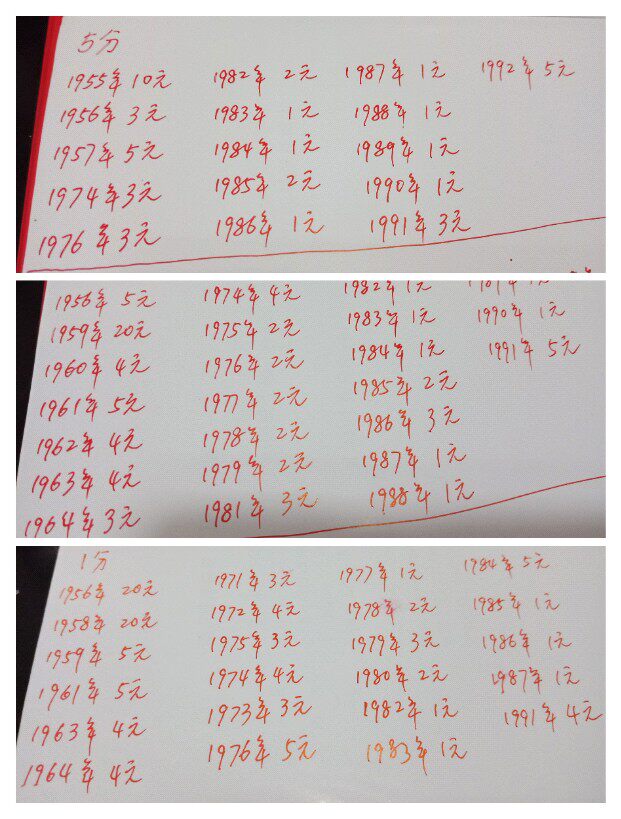 5分
1955年 10元 1982年 2元 1987年 1元 1992年 5元
1956年 3元 1983年 1元 1988年 1元
1957年 5元 1984年 1元 1989年 1元
1974年 3元 1985年 2元 1990年 1元
1976年 3元 1986年 1元 1991年 3元
1956年 5元 1974年 4元 1982年 1元 1989年 1元
1959年 20元 1975年 2元 1983年 1元 1990年 1元
1960年 4元 1976年 2元 1984年 1元 1991年 5元
1961年 5元 1977年 2元 1985年 2元
1962年 4元 1978年 2元 1986年 3元
1963年 4元 1979年 2元 1987年 1元
1964年 3元 1981年 3元 1988年 1元
1分
1956年 20元 1971年 3元 1977年 1元 1984年 5元
1958年 20元 1972年 4元 1978年 2元 1985年 1元
1959年 5元 1975年 3元 1979年 3元 1986年 1元
1961年 5元 1974年 4元 1980年 2元 1987年 1元
1963年 4元 1973年 3元 1982年 1元 1991年 4元
1964年 4元 1976年 5元 1983年 1元